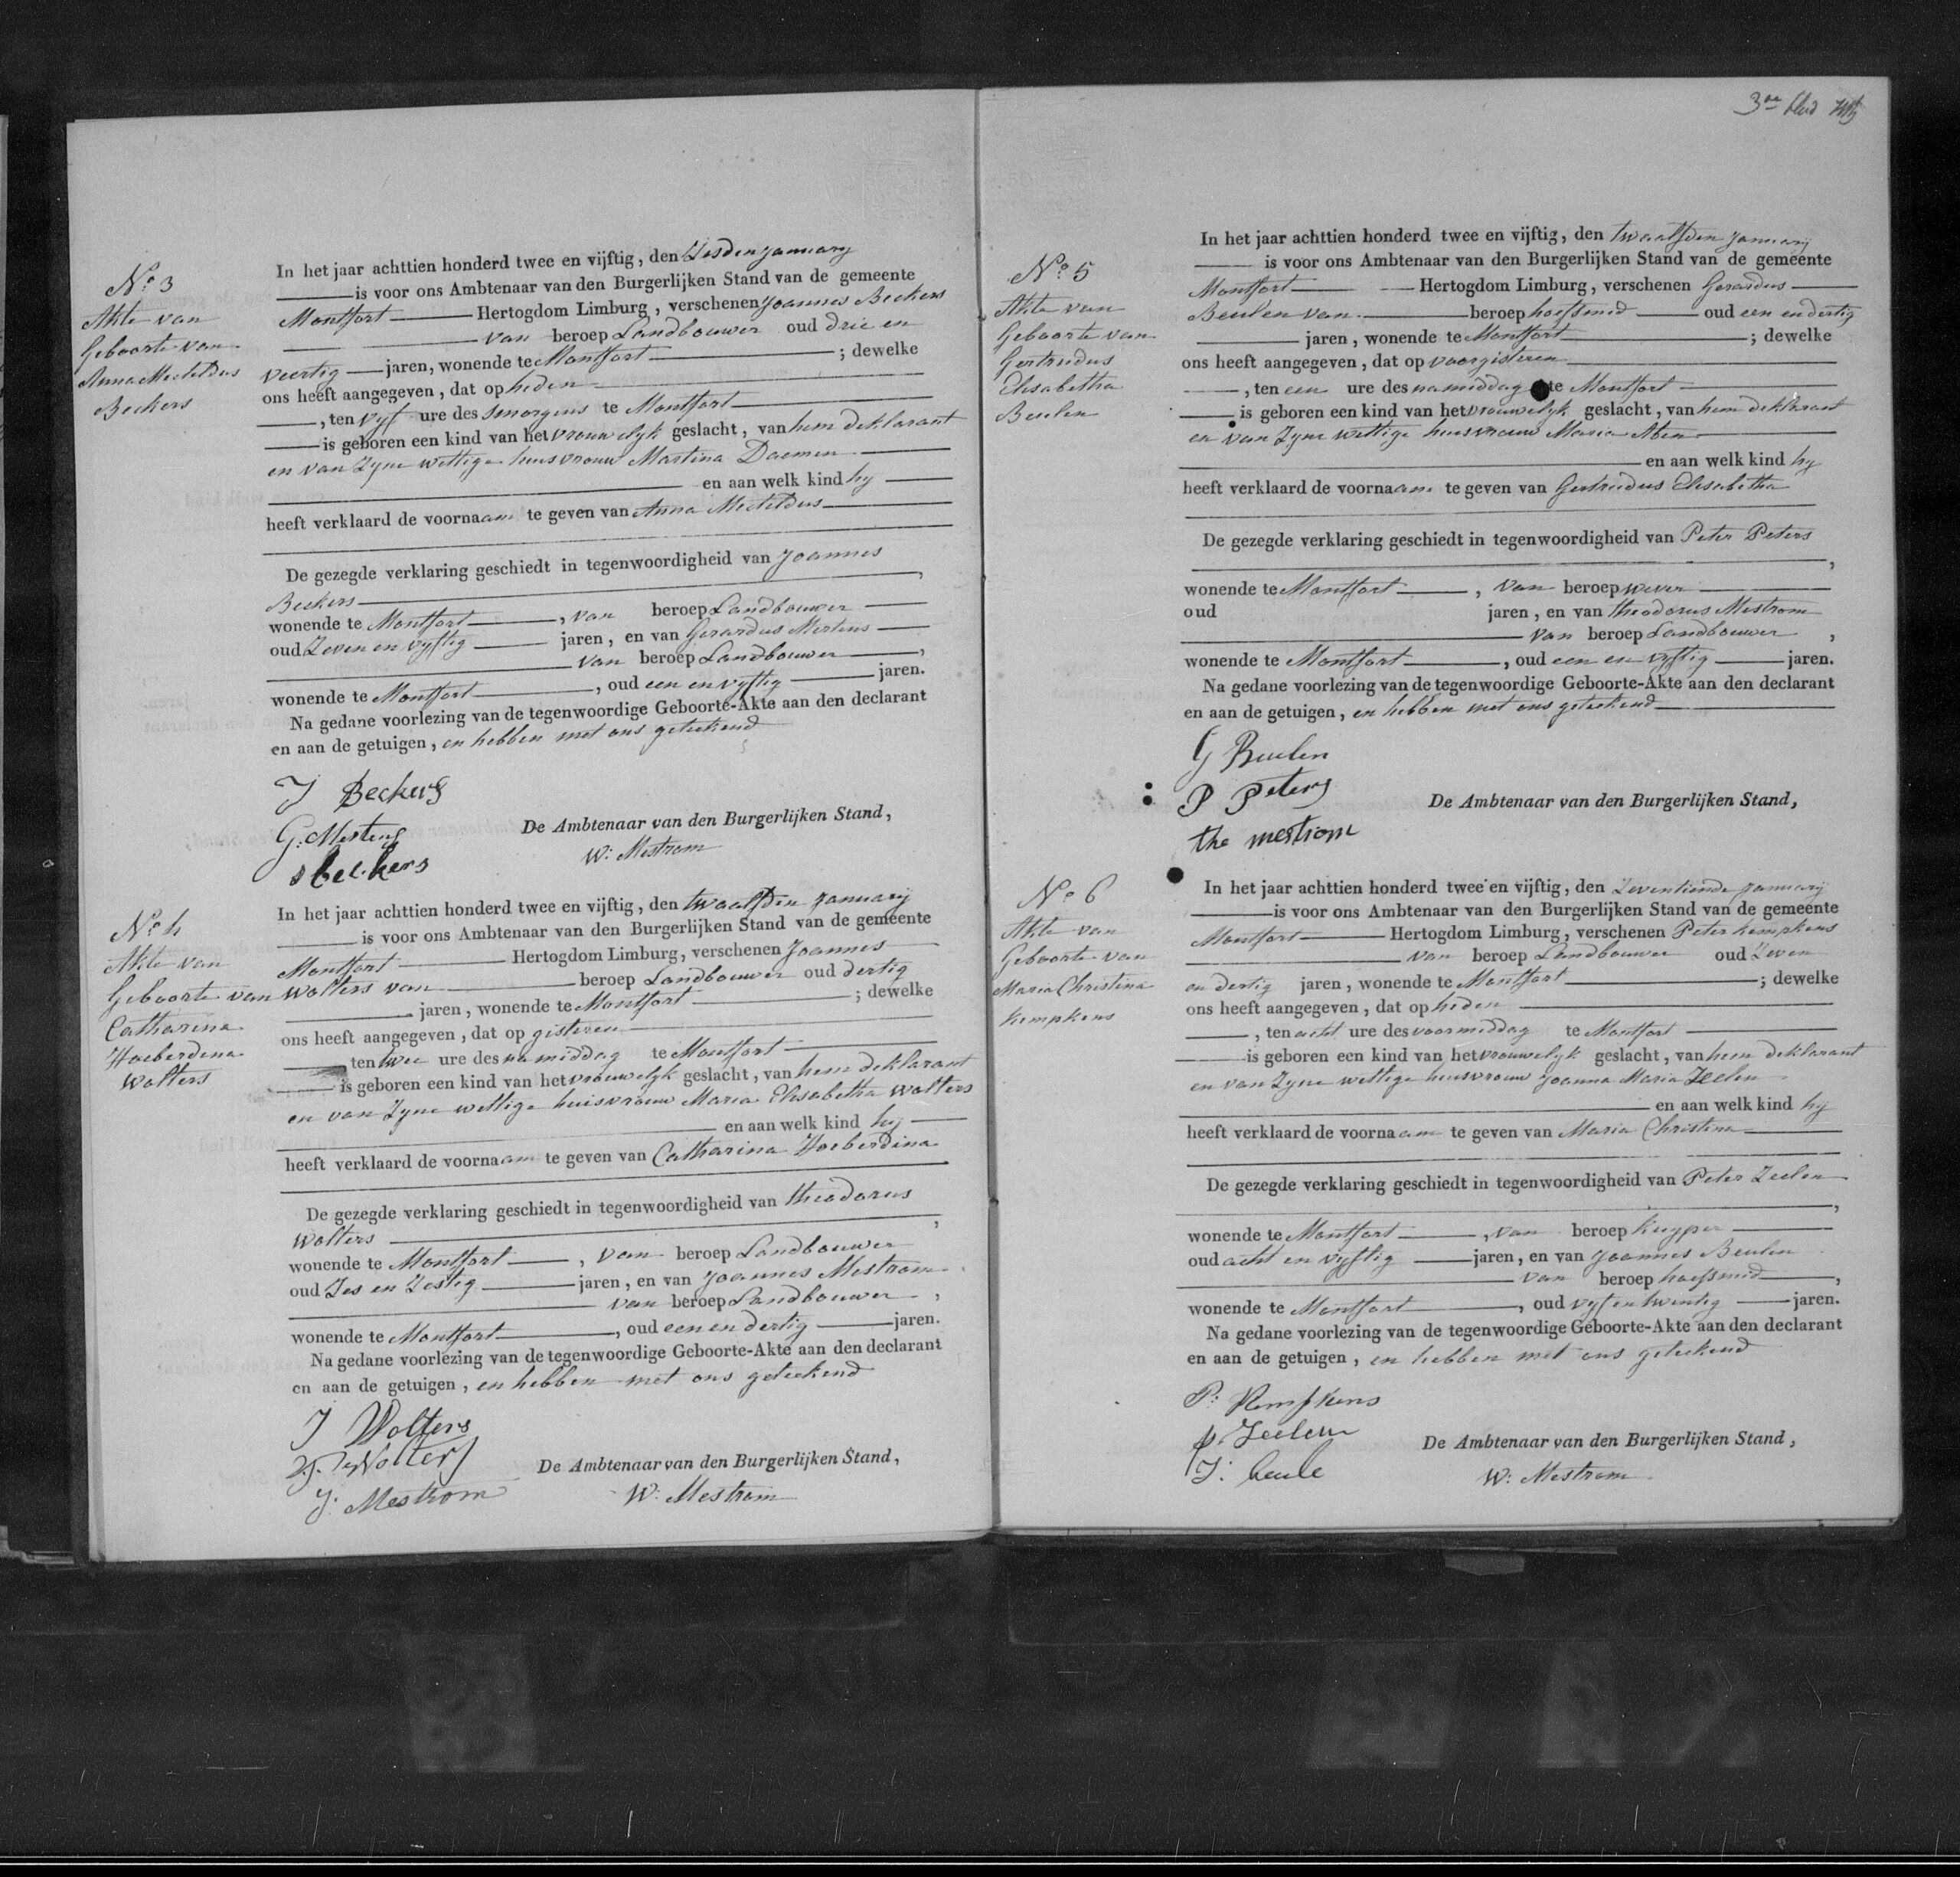 3de blad
No 3
Akte van
Geboorte van
Anna Mechtildus
Beckers
In het jaar achttien honderd twee en vijftig, den Zesden January
is voor ons Ambtenaar van den Burgerlijken Stand van de gemeente
Montfort Hertogdom Limburg, verschenen Joannes Beckers
van beroep Landbouwer oud drie en
veertig jaren, wonende te Montfort ; dewelke
ons heeft aangegeven, dat op heden
, ten vyf ure des smorgens te Montfort
is geboren een kind van het vrouwelyk geslacht, van hem deklarant
en van Zyne wettige huisvrouw Martina Daemen
en aan welk kind hy
heeft verklaard de voornaam te geven van Anna Mechtildus
De gezegde verklaring geschiedt in tegenwoordigheid van Joannes
Beckers ,
wonende te Montfort , van beroep Landbouwer
oud Zeven en vyftig jaren, en van Gerardus Mertens
van beroep Landbouwer ,
wonende te Montfort , oud een en vyftig jaren.
Na gedane voorlezing van de tegenwoordige Geboorte-Akte aan den declarant
en aan de getuigen, en hebben met ons geteekend
J Beckers
G: Mertens
J beckers
De Ambtenaar van den Burgerlijken Stand,
W: Mestrom
No 4
Akte van
Geboorte van
Catharina
Hoeberdina
Wolters
In het jaar achttien honderd twee en vijftig, den twaalfden January
is voor ons Ambtenaar van den Burgerlijken Stand van de gemeente
Montfort Hertogdom Limburg, verschenen Joannes
Wolters van beroep Landbouwer oud dertig
jaren, wonende te Montfort ; dewelke
ons heeft aangegeven, dat op gisteren
ten twee ure des namiddag te Montfort
is geboren een kind van het vrouwelyk geslacht, van hem deklarant
en van Zyne wettige huisvrouw Maria Elisabetha Wolters
en aan welk kind hy
heeft verklaard de voornaam te geven van Catharina Hoeberdina
De gezegde verklaring geschiedt in tegenwoordigheid van Theodorus
Wolters ,
wonende te Montfort , van beroep Landbouwer
oud Zes en Zestig jaren, en van Joannes Mestrom
van beroep Landbouwer ,
wonende te Montfort , oud een en dertig jaren.
Na gedane voorlezing van de tegenwoordige Geboorte-Akte aan den declarant
en aan de getuigen, en hebben met ons geteekend
J Wolters
Wolters
J: Mestrom
De Ambtenaar van den Burgerlijken Stand,
W: Mestrom
No 5
Akte van
Geboorte van
Gertrudus
Elisabetha
Beulen
In het jaar achttien honderd twee en vijftig, den twaalfden January
is voor ons Ambtenaar van den Burgerlijken Stand van de gemeente
Montfort Hertogdom Limburg, verschenen Gerardus
Beulen van beroep hoefsmid oud een en dertig
jaren, wonende te Montfort ; dewelke
ons heeft aangegeven, dat op voorgisteren
, ten een ure des namiddag te Montfort
is geboren een kind van het vrouwelyk geslacht, van hem deklarant
en van Zyne wettige huisvrouw Maria Aben
en aan welk kind hy
heeft verklaard de voornaam te geven van Gertrudus Elisabetha
De gezegde verklaring geschiedt in tegenwoordigheid van Peter Peters
,
wonende te Montfort , van beroep wever
oud jaren, en van Theodorus Mestrom
van beroep Landbouwer ,
wonende te Montfort , oud een en vyftig jaren.
Na gedane voorlezing van de tegenwoordige Geboorte-Akte aan den declarant
en aan de getuigen, en hebben met ons geteekend
G Beulen
P Peters
the mestrom
De Ambtenaar van den Burgerlijken Stand,
No 6
Akte van
Geboorte van
Maria Christina
Kempkens
In het jaar achttien honderd twee en vijftig, den Zeventiende January
is voor ons Ambtenaar van den Burgerlijken Stand van de gemeente
Montfort Hertogdom Limburg, verschenen Peter Kempkens
van beroep Landbouwer oud Zeven
en dertig jaren, wonende te Montfort ; dewelke
ons heeft aangegeven, dat op heden
, ten acht ure des voormiddag te Montfort
is geboren een kind van het vrouwelyk geslacht, van hem deklarant
en van Zyne wettige huisvrouw Joanna Maria Zeelen
en aan welk kind hy
heeft verklaard de voornaam te geven van Maria Christina
De gezegde verklaring geschiedt in tegenwoordigheid van Peter Zeelen
,
wonende te Montfort , van beroep Kuyper
oud acht en vyftig jaren, en van Joannes Beulen
van beroep hoefsmid ,
wonende te Montfort , oud vyf en twintig jaren.
Na gedane voorlezing van de tegenwoordige Geboorte-Akte aan den declarant
en aan de getuigen, en hebben met ons geteekend
P: Kempkens
p. Zeelen
J: beule
De Ambtenaar van den Burgerlijken Stand,
W: Mestrom